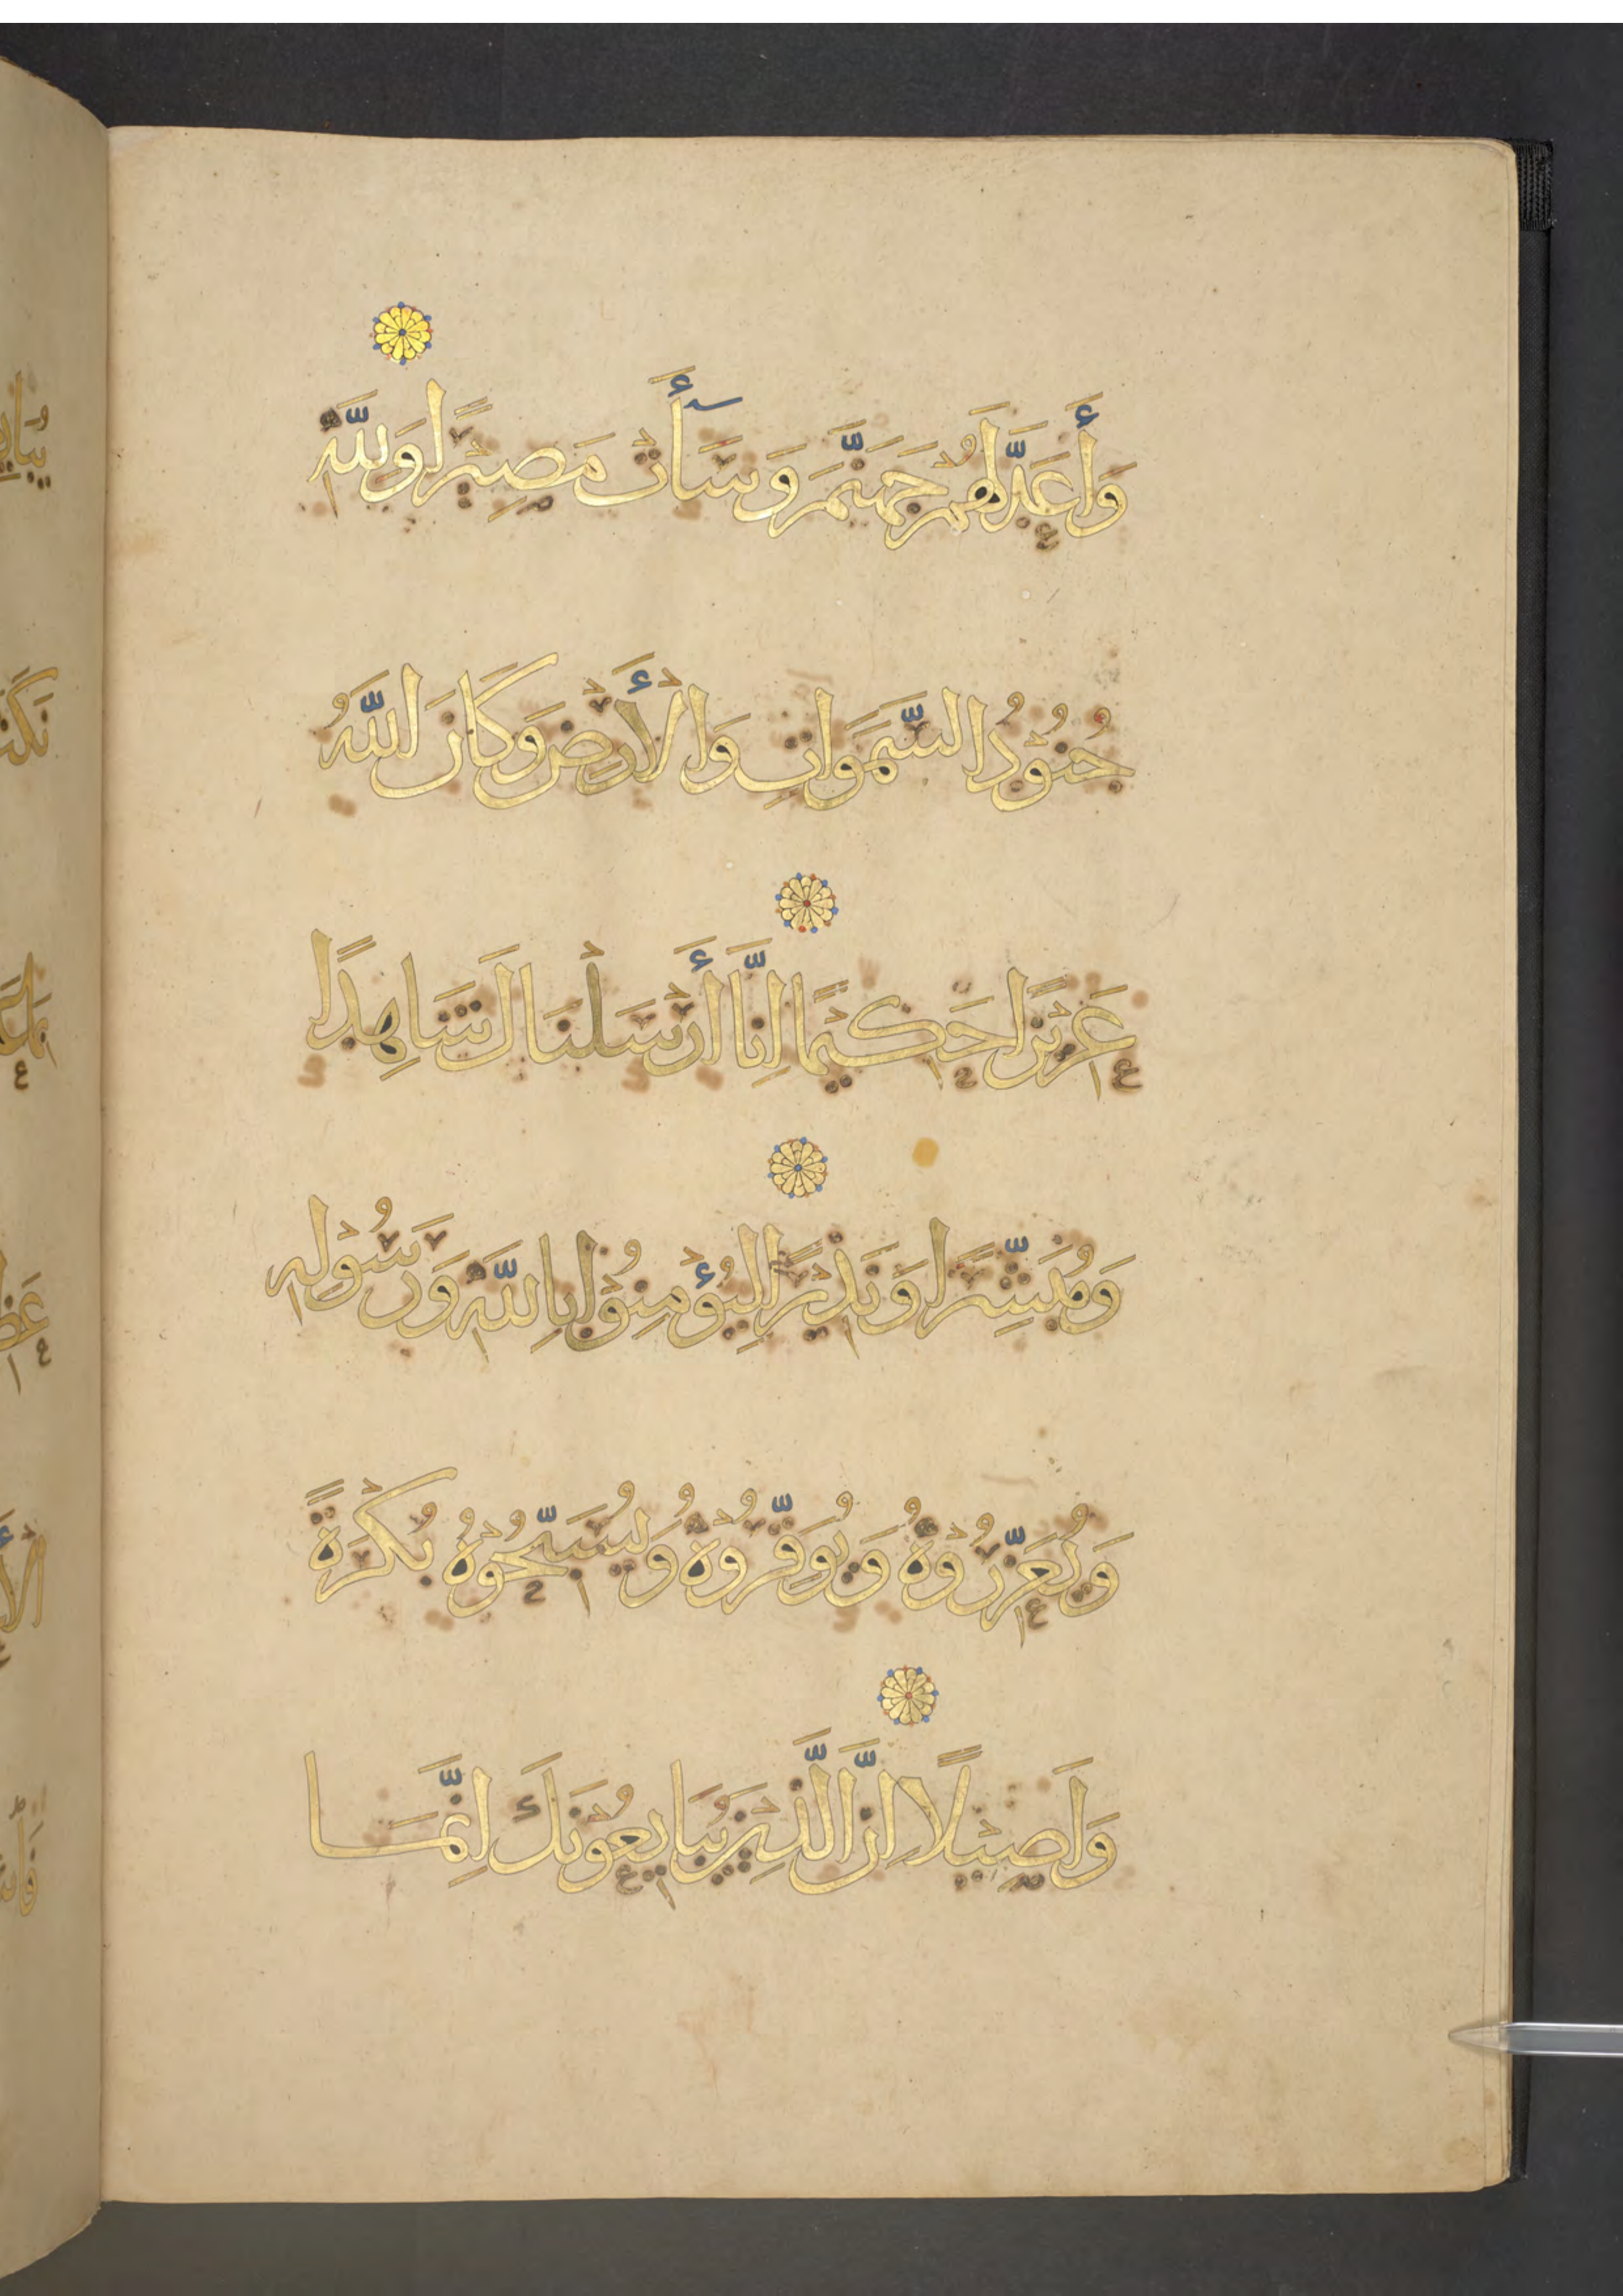 وَأَعَدَّ لَهُمْ جَهَنَّمَ وَسَأَتْ مَصِيْرًا وَلِلَّهِ
جُنُوْدُ السَّمَوَاتِ وَالْأَرْضِ وَكَانَ اللَّهُ
عَزِيْزًا حَكِيْمًا اِنَّا أَرْسَلْنَاكَ شَاهِدًا
وَمُبَشِّرًا وَنَذِيْرًا لِيُؤْمِنُوْا بِاللَّهِ وَرَسُوْلِهِ
وَيُعَزِّرُوْهُ وَيُوَقِّرُوْهُ وَيُسَبِّحُوْهُ بُكْرَةً
وَاَصِيْلًا اِنَّ الَّذِيْنَ يُبَايِعُوْنَكَ اِنَّمَا